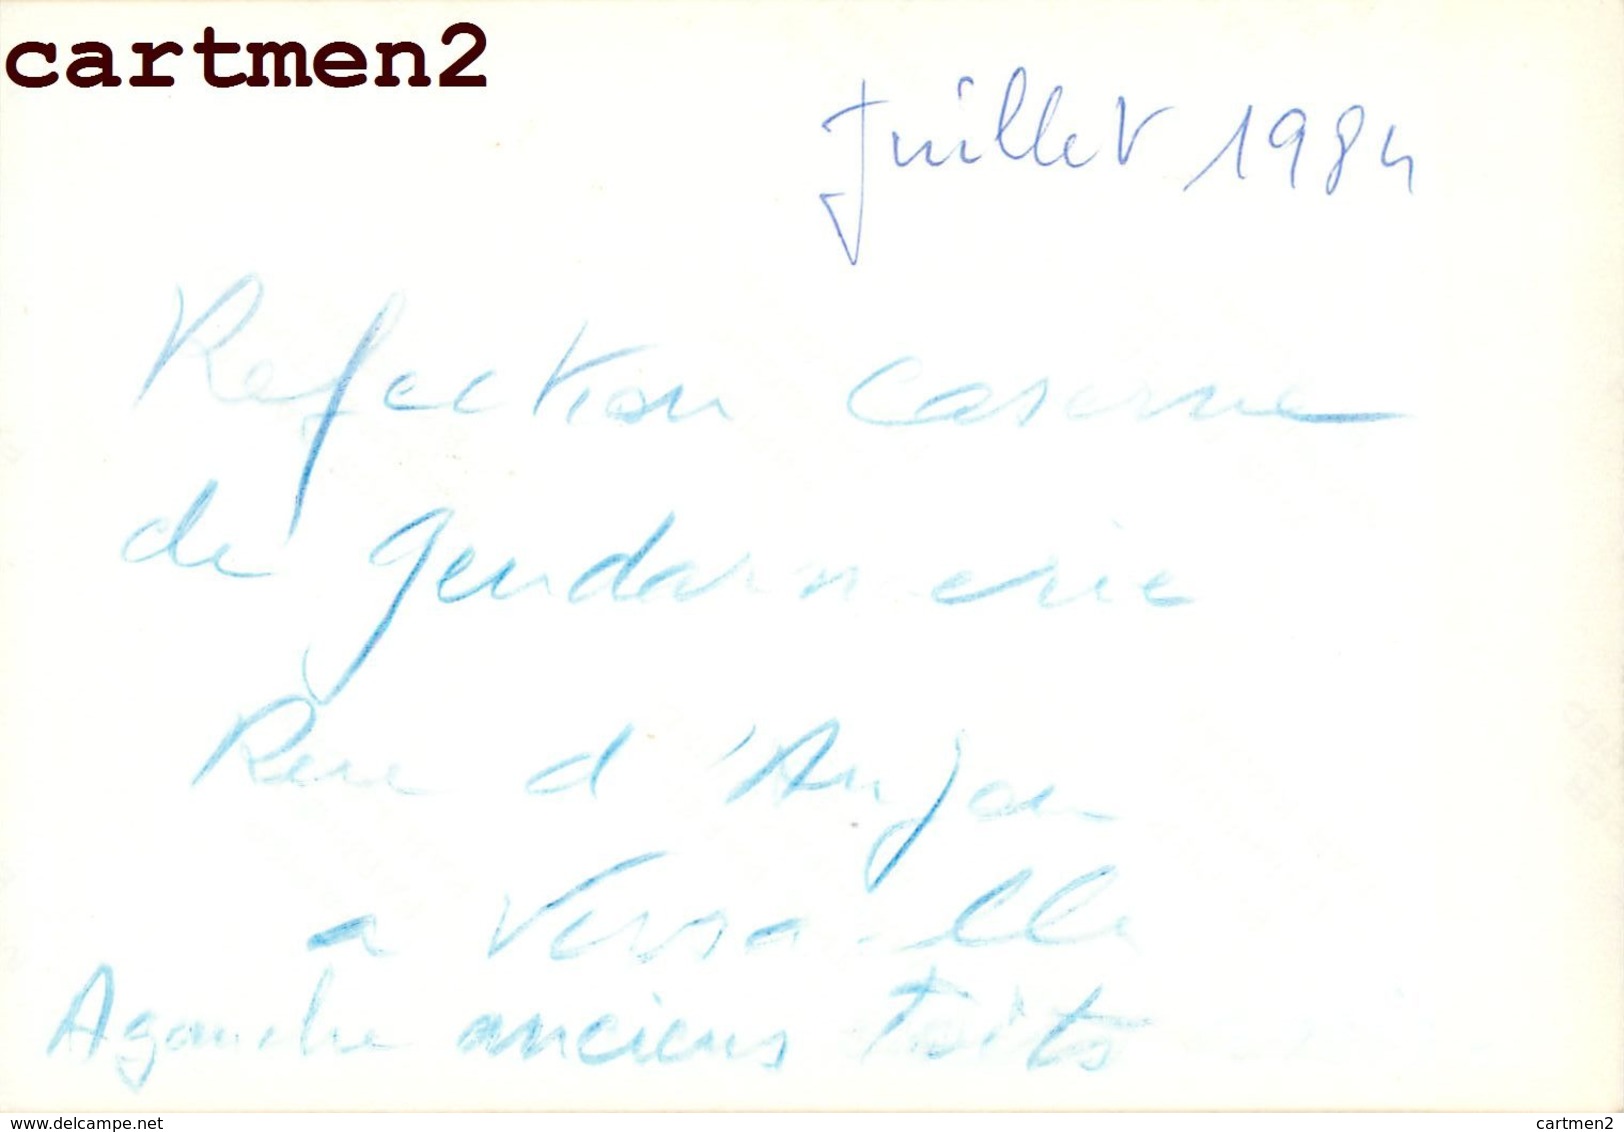 cartmen2
Juillet 1984
Refection caserne
de gendarmerie
Rue d'Anjou
a Versaille
A gauche anciens toits
www.delcampe.net
cartmen2